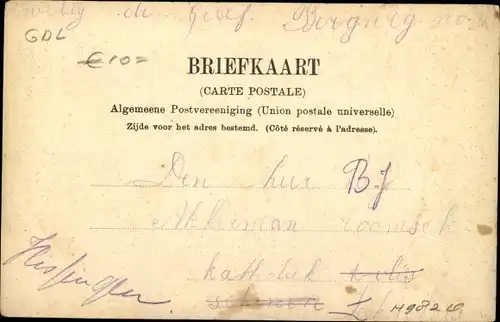 de Graef. Bergweg no.
GDL
€ 10=
BRIEFKAART
(CARTE POSTALE)
Algemeene Postvereeniging (Union postale universelle)
Zijde voor het adres bestemd. (Côté réservé à l'adresse).
Den heer BJ
Akkerman roomsch
katholiek
H9820